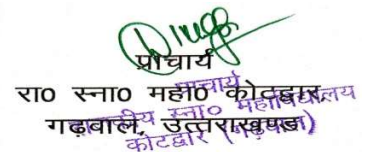 प्राचार्य
रा० स्ना० महा० कोटद्वार
गढ़वाल, उत्तराखण्ड
प्राचार्य
राजकीय स्ना० महाविद्यालय
कोटद्वार (गढ़वाल)